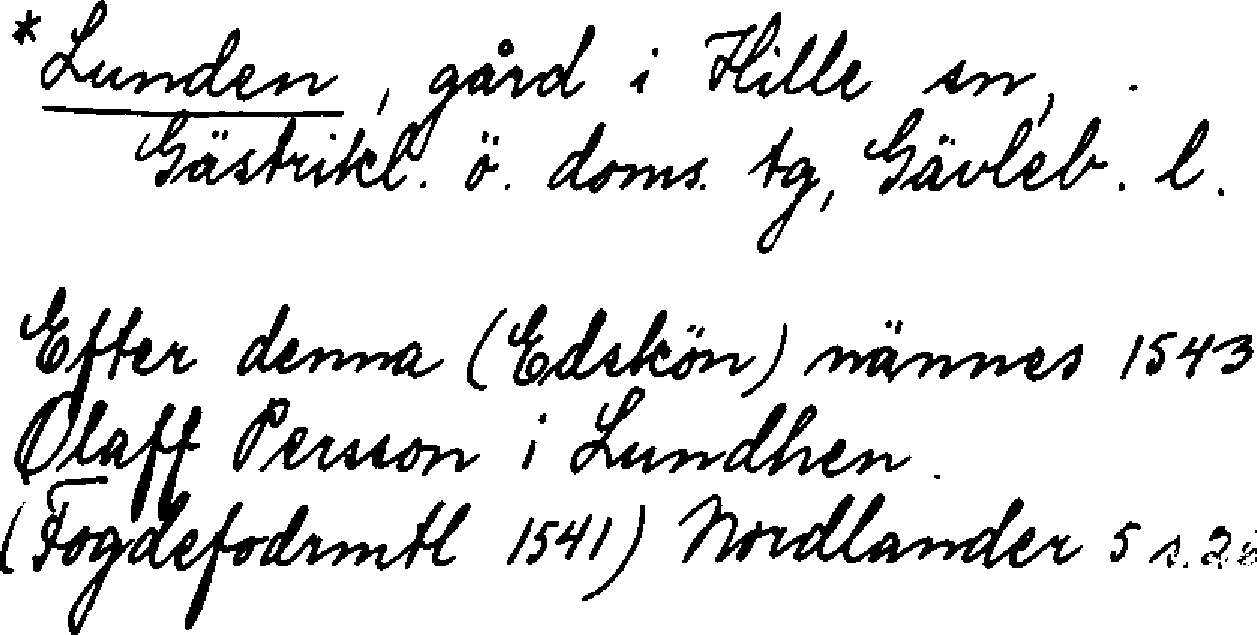 *Lunden, gård i Hille sn,
Gästrikl. ö. doms. tg, Gävleb. l.
Efter denna (Edskön) nämnes 1543
Olaff Persson i Lundhen.
(Fogdefodrmtl 1541) Nordlander 5 s.